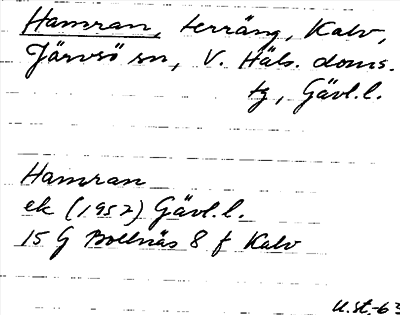 Hamran, terräng, Kalv,
Järvsö sn, V. Häls. doms.
tg, Gävl.l.
Hamran
ek (1957) Gävl.l.
15 G Bollnäs 8 f Kalv
U.st.-63